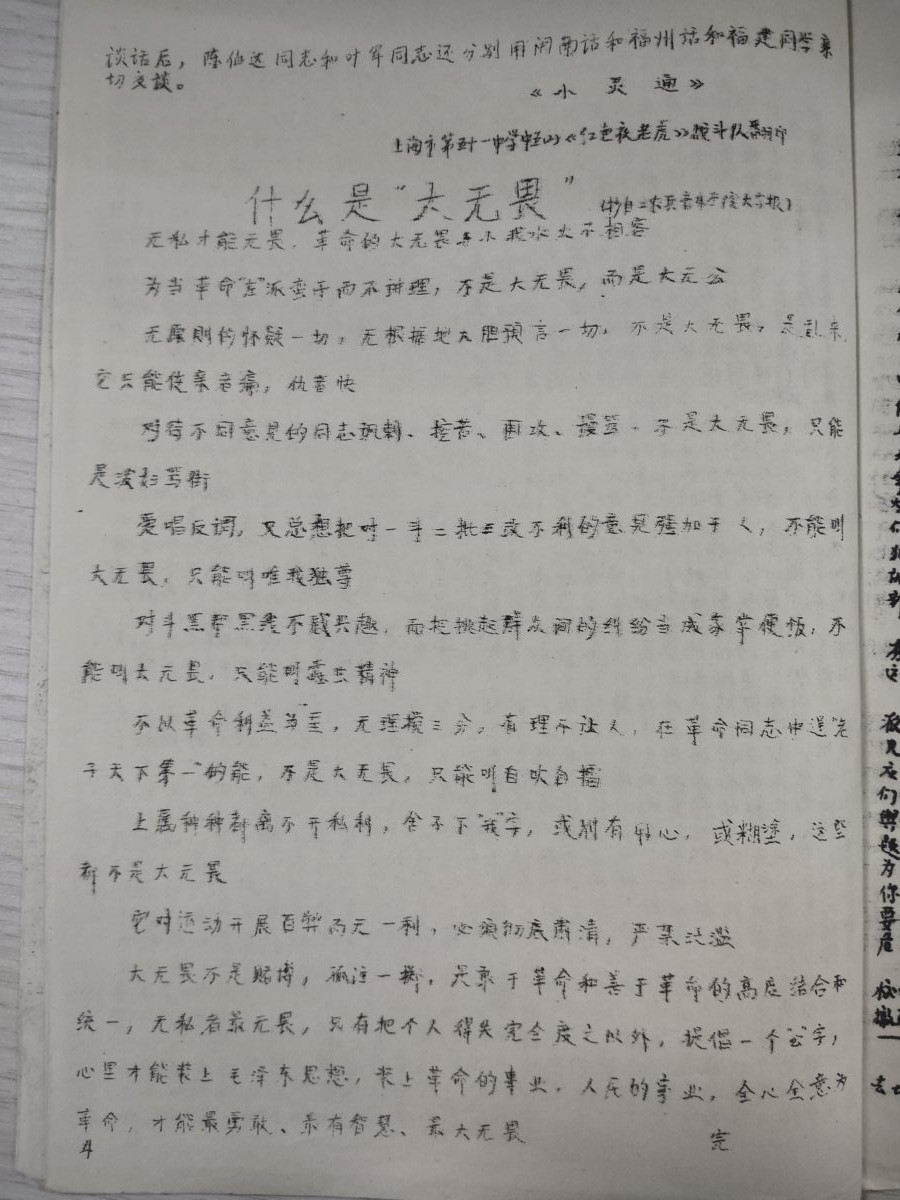 谈话后，陈伯达同志和叶军同志还分别用闽南话和福州话和福建同学亲
切交谈。
《小灵通》
上海市第五十一中学中五(2)《红色夜老虎》战斗队翻印
什么是“大无畏”
无私才能无畏．革命的大无畏与小我水火不相容
为当革命“左”派蛮于而不讲理，不是大无畏，而是大无公
无原则的怀疑一切，无根据地大胆预言一切，不是大无畏，是乱来，
它只能使亲者痛，仇者快
对待不同意见的同志讽刺、挖苦、围攻、谩骂，不是大无畏，只能
是泼妇骂街
爱唱反调，又总想把对一斗二批三改不利的意见强加于人，不能叫
大无畏，只能叫唯我独尊
对斗黑帮黑线不感兴趣，而把挑起群众间的纠纷当成家常便饭，不
能叫大无畏，只能叫蠹虫精神
不以革命利益为至，无理搅三分，有理不让人，在革命同志中逞“老
子天下第一”的能，不是大无畏，只能叫自吹自擂
上属种种都离不开私利，舍不下“我”字，或别有用心，或糊塗，这些
都不是大无畏
它对运动开展百弊而无一利，必须彻底肃清，严禁泛滥
大无畏不是赌博，孤注一掷，是敢于革命和善于革命的高度结合和
统一，无私者最无畏，只有把个人得失完全度之以外，提倡一个“公”字，
心里才能装上毛泽东思想，装上革命的事业．人民的事业，全心全意为
革命，才能最勇敢、最有智慧、最大无畏
完
4